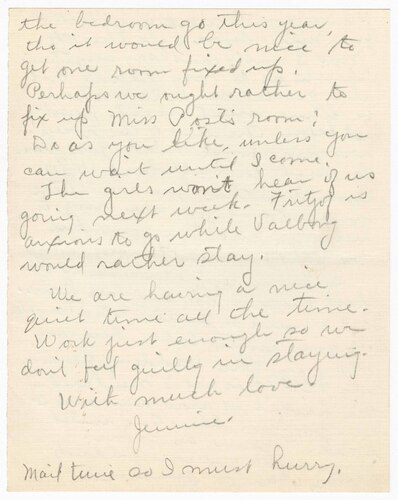 the bedroom go this year,
tho it would be nice to
get one room fixed up.
Perhaps we ought rather to
fix up Miss Post's room?
Do as you like, unless you
can wait until I come.
The girls won't hear of us
going next week. Fritzof is
anxious to go while Valborg
would rather stay.
We are having a nice
quiet time all the time.
Work just enough so we
don't feel guilty in staying.
With much love
Jennie.
Mail time so I must hurry.